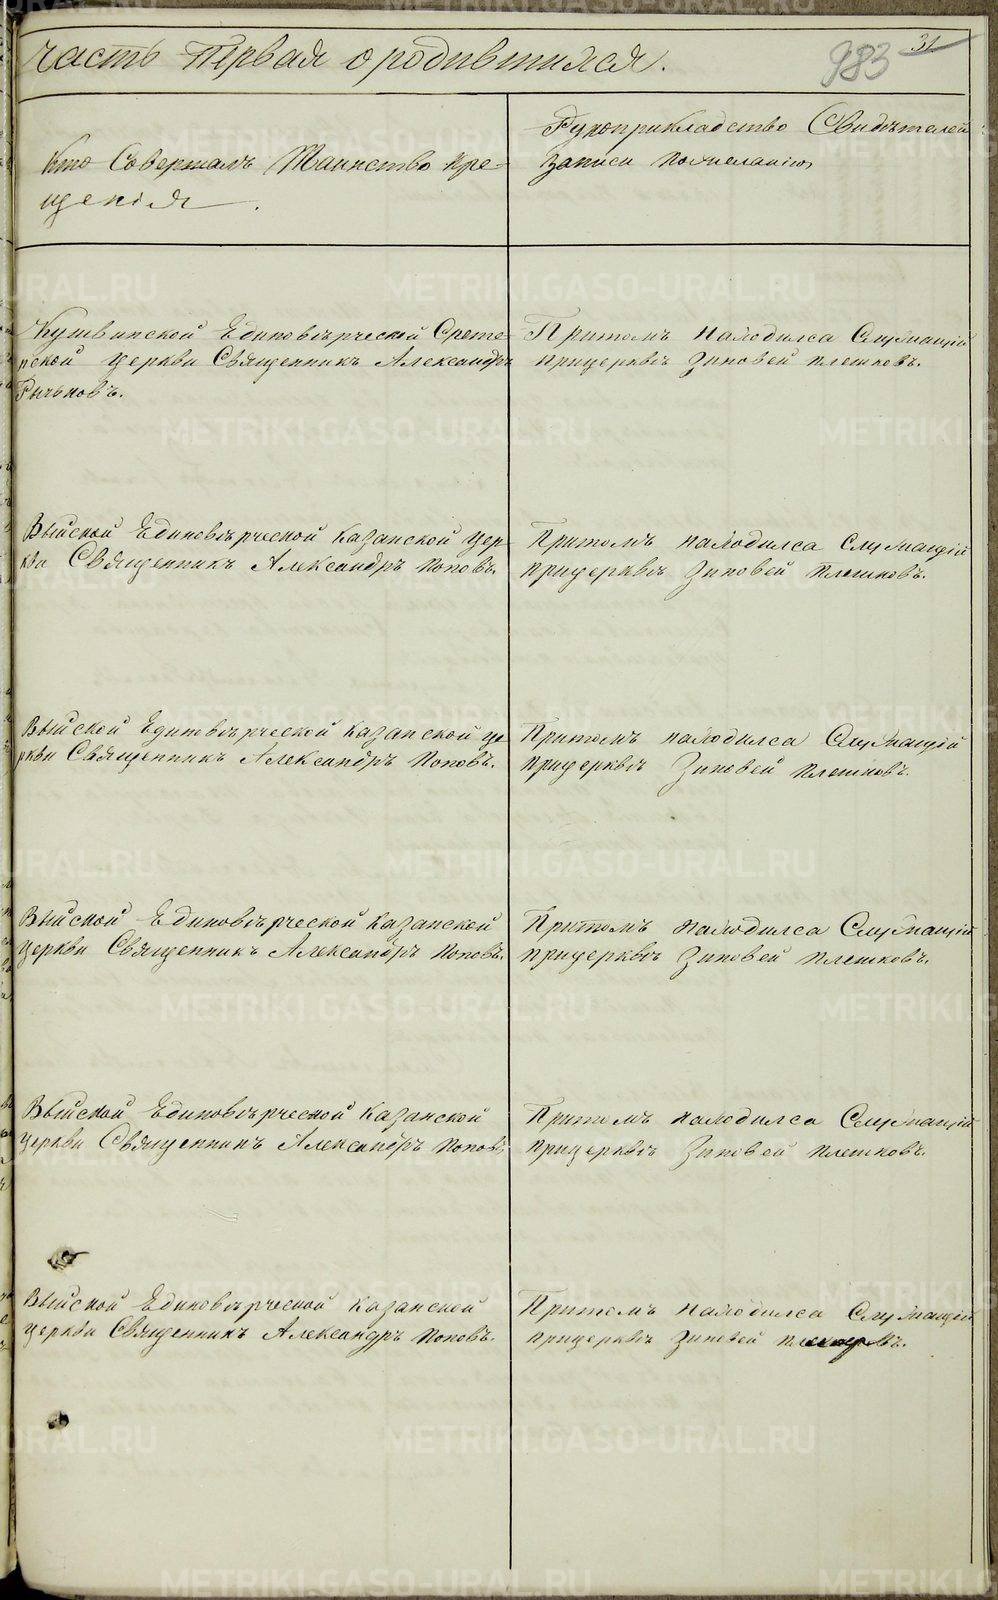 часть первая о родившихся.
983
31
Кто Совершалъ Таинство кре-
щенія.
Рукоприкладство Свидѣтелей
записи пожеланію
Кушвинской Единовѣрческой Срете-
нской церкви Священникъ Александръ
Рычьковъ.
Притомъ находилса Служащій
прицерквѣ Зиновей плешковъ.
Выйской Единовѣрческой Казанской цер-
кви Священникъ Александръ поповъ.
Притомъ находилса Служащій
прицерквѣ Зиновей плешковъ.
Выйской Единовѣрческой Казанской це
ркви Священникъ Александръ поповъ.
Притомъ находилса Служащій
прицерквѣ Зиновей плешковъ.
Выйской Единовѣрческой Казанской
церкви Священникъ Александръ поповъ.
Притомъ находилса Служащій
прицерквѣ Зиновей плешковъ.
Выйской Единовѣрческой Казанской
церкви Священникъ Александръ поповъ
Притомъ находилса Служащій
прицерквѣ Зиновей плешковъ.
Выйской Единовѣрческой Казанской
церкви Священникъ Александръ поповъ.
Притомъ находилса Служащій
прицерквѣ Зиновей плешковъ.
METRIKI.GASO-URAL.RU